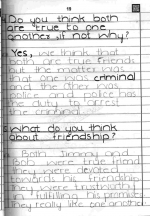 18
Do you think both
are "true to one
another, if not why?
Yes, we think that
both are true friends
but the matter was
that one was criminal
and the other was
police and police has
the duty to arrest
the criminal.
What do you think
about friendship?
Both Jimmy and
Bob were true friend
they were devoted
towards his friendship
they were trustworthy
in fulfilling his promise
They really like one another